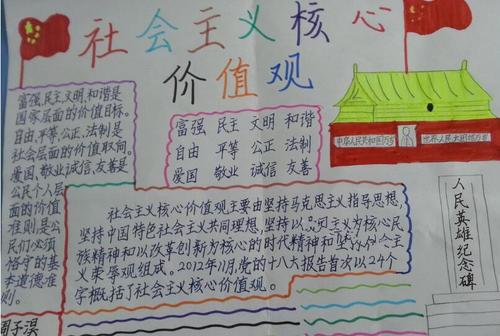 社会主义核心
价值观
富强、民主、文明、和谐是
国家层面的价值目标。
自由、平等、公正、法制是
社会层面的价值取向。
爱国、敬业、诚信、友善是
公民个人层
面的价值
准则,是公
民们必须
恪守的基
本道德准
则。
富强 民主 文明 和谐
自由 平等 公正 法制
爱国 敬业 诚信 友善
中华人民共和国万岁
世界人民大团结万岁
社会主义核心价值观主要由坚持马克思主义指导思想,
坚持中国特色社会主义共同理想,坚持以爱国主义为核心民
族精神和以改革创新为核心的时代精神和坚持社会主
义荣辱观组成。2012年11月,党的十八大报告首次以24个
字概括了社会主义核心价值观。
人民英雄纪念碑
周子淏